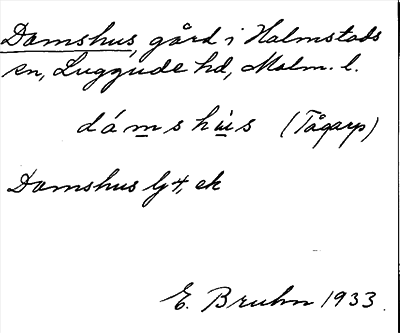 Damshus, gård i Halmstads
sn, Luggude hd, Malm. l.
dámshùs (Tågarp)
Damshus Gt, ek
E. Bruhn 1933.